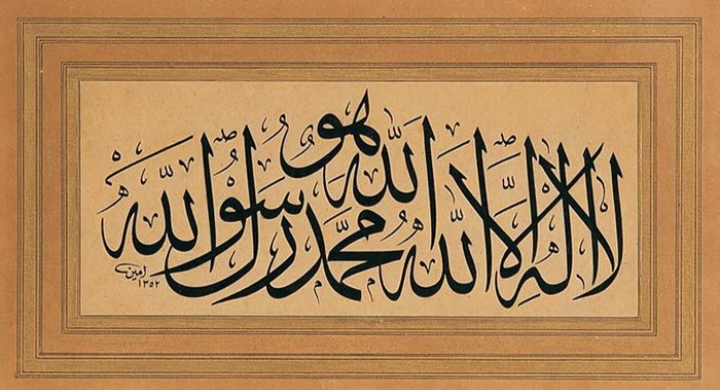 لا اله الا الله هو الله محمد رسول الله
امين
١٣٥٢